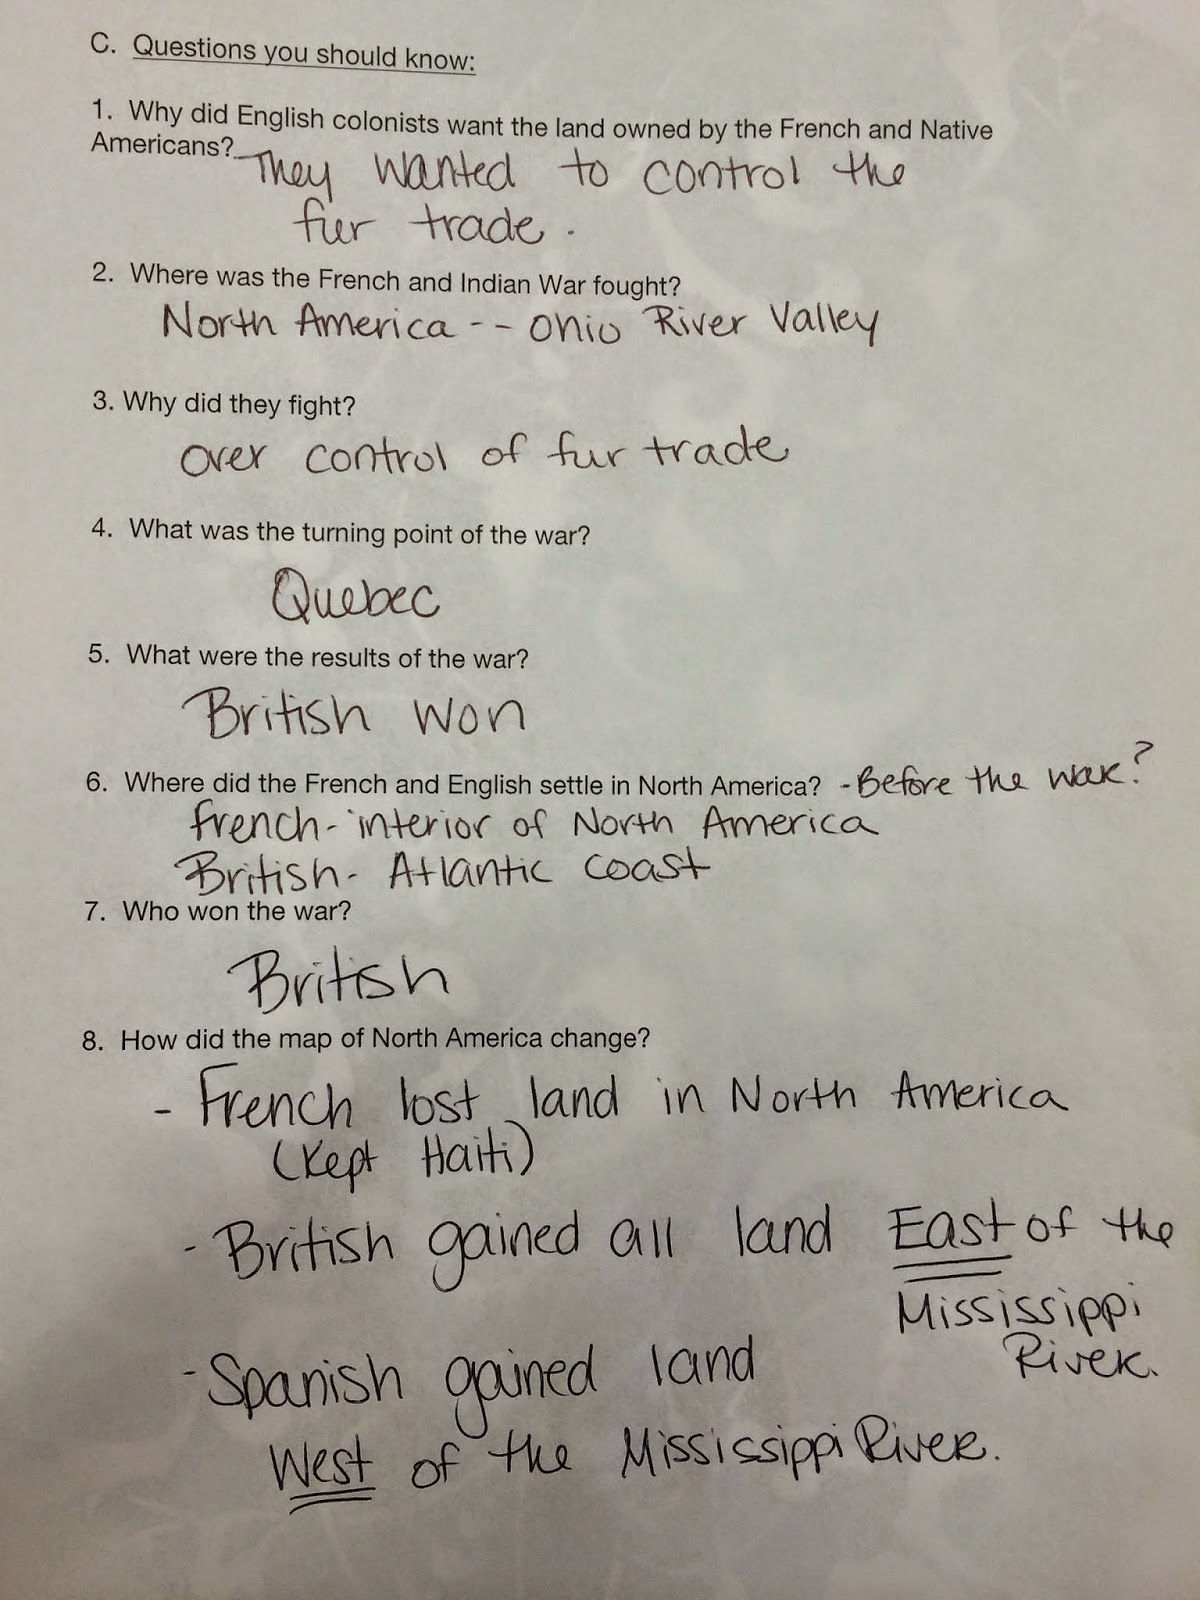 C. Questions you should know:
1. Why did English colonists want the land owned by the French and Native
Americans? They wanted to control the
fur trade.
2. Where was the French and Indian War fought?
North America -- Ohio River Valley
3. Why did they fight?
over control of fur trade
4. What was the turning point of the war?
Quebec
5. What were the results of the war?
British won
6. Where did the French and English settle in North America? - Before the war?
French - interior of North America
British - Atlantic coast
7. Who won the war?
British
8. How did the map of North America change?
- French lost land in North America
(Kept Haiti)
- British gained all land East of the
Mississippi
River.
- Spanish gained land
West of the Mississippi River.